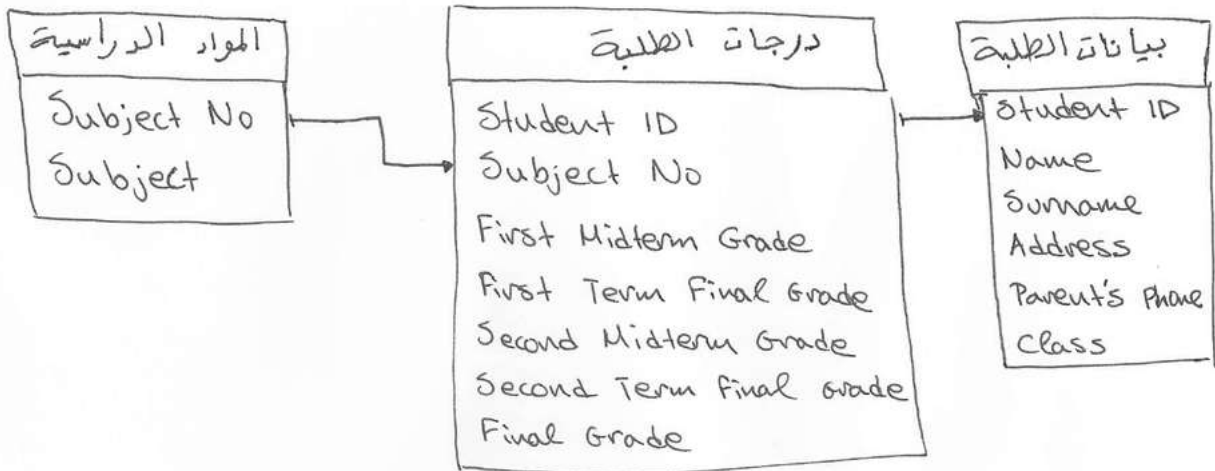 المواد الدراسية
Subject No
Subject
درجات الطلبة
Student ID
Subject No
First Midterm Grade
First Term Final Grade
Second Midterm Grade
Second Term Final Grade
Final Grade
بيانات الطلبة
Student ID
Name
Surname
Address
Parent's Phone
Class